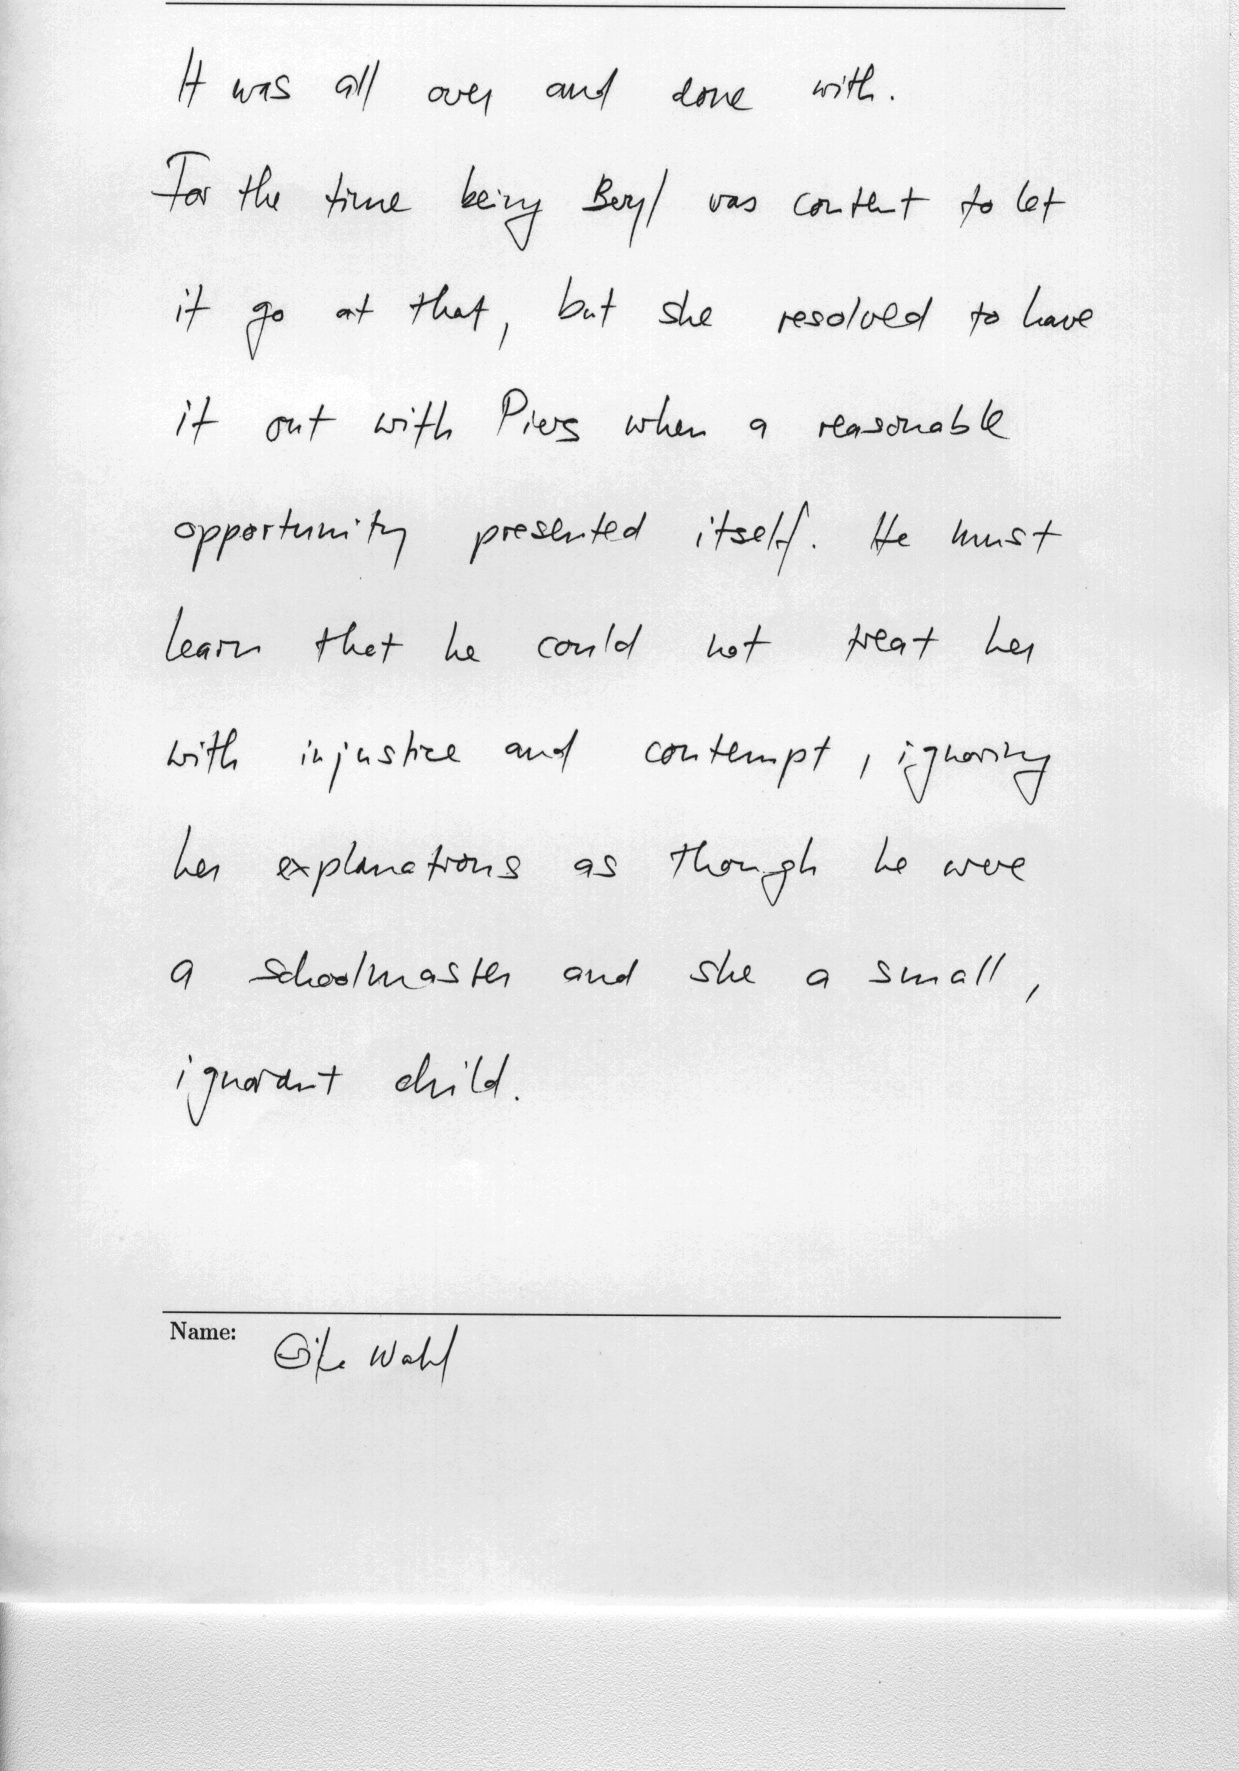 It was all over and done with.
For the time being Beryl was content to let
it go at that, but she resolved to have
it out with Piers when a reasonable
opportunity presented itself. He must
learn that he could not treat her
with injustice and contempt, ignoring
her explanations as though he were
a schoolmaster and she a small,
ignorant child.
Name: Wahl